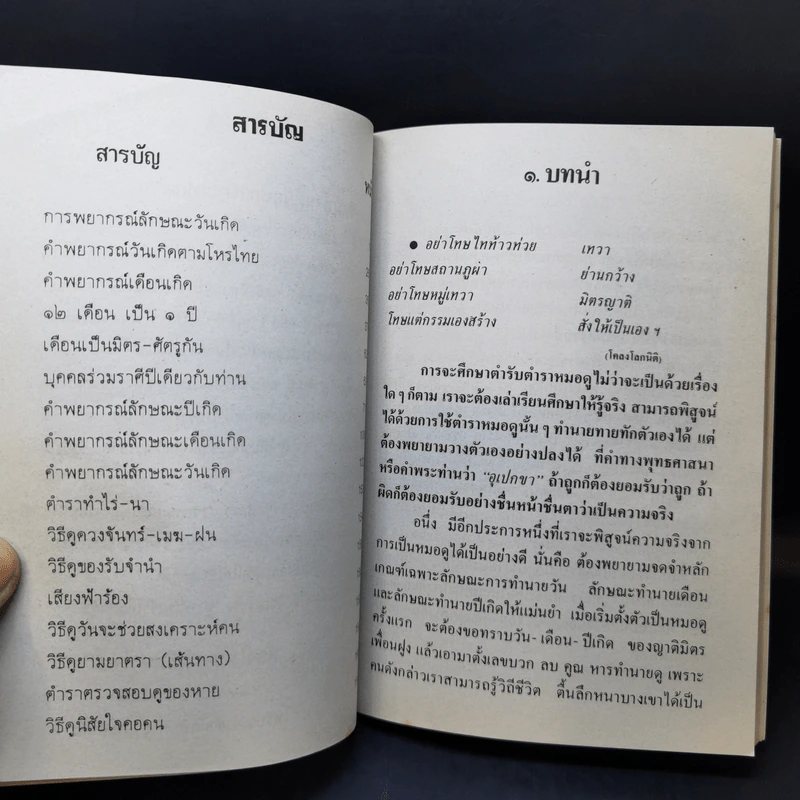 สารบัญ
สารบัญ
การพยากรณ์ลักษณะวันเกิด
คำพยากรณ์วันเกิดตามโหรไทย
คำพยากรณ์เดือนเกิด
๑๒ เดือน เป็น ๑ ปี
เดือนเป็นมิตร-ศัตรูกัน
บุคคลร่วมราศีปีเดียวกับท่าน
คำพยากรณ์ลักษณะปีเกิด
คำพยากรณ์ลักษณะเดือนเกิด
คำพยากรณ์ลักษณะวันเกิด
ตำราทำไร่-นา
วิธีดูดวงจันทร์-เมฆ-ฝน
วิธีดูของรับจำนำ
เสียงฟ้าร้อง
วิธีดูวันจะช่วยสงเคราะห์คน
วิธีดูยามยาตรา (เส้นทาง)
ตำราตรวจสอบดูของหาย
วิธีดูนิสัยใจคอคน
๑. บทนำ
● อย่าโทษไทท้าวท่วย เทวา
อย่าโทษสถานภูผา ย่านกว้าง
อย่าโทษหมู่เทวา มิตรญาติ
โทษแต่กรรมเองสร้าง สั่งให้เป็นเอง ฯ
(โคลงโลกนิติ)
การจะศึกษาตำรับตำราหมอดูไม่ว่าจะเป็นด้วยเรื่อง
ใด ๆ ก็ตาม เราจะต้องเล่าเรียนศึกษาให้รู้จริง สามารถพิสูจน์
ได้ด้วยการใช้ตำราหมอดูนั้น ๆ ทำนายทายทักตัวเองได้ แต่
ต้องพยายามวางตัวเองอย่างปลงได้ ที่คำทางพุทธศาสนา
หรือคำพระท่านว่า "อุเปกขา" ถ้าถูกก็ต้องยอมรับว่าถูก ถ้า
ผิดก็ต้องยอมรับอย่างชื่นหน้าชื่นตาว่าเป็นความจริง
อนึ่ง มีอีกประการหนึ่งที่เราจะพิสูจน์ความจริงจาก
การเป็นหมอดูได้เป็นอย่างดี นั่นคือ ต้องพยายามจดจำหลัก
เกณฑ์เฉพาะลักษณะการทำนายวัน ลักษณะทำนายเดือน
และลักษณะทำนายปีเกิดให้แม่นยำ เมื่อเริ่มตั้งตัวเป็นหมอดู
ครั้งแรก จะต้องขอทราบวัน- เดือน- ปีเกิด ของญาติมิตร
เพื่อนฝูง แล้วเอามาตั้งเลขบวก ลบ คูณ หารทำนายดู เพราะ
คนดังกล่าวเราสามารถรู้วิถีชีวิต ตื้นลึกหนาบางเขาได้เป็น